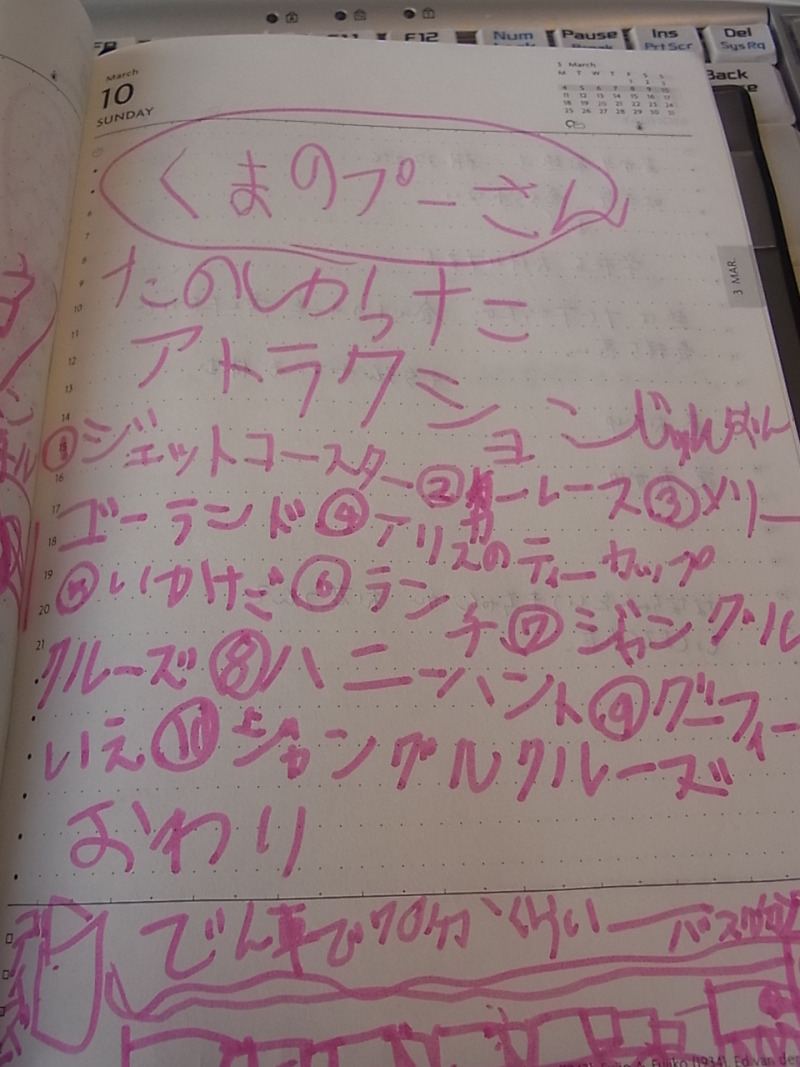 F12
Num
Pause
Ins
Prt Scr
Del
Sys Rq
Back
March
10
SUNDAY
3 March
M T W T F S S
1 2 3
4 5 6 7 8 9 10
11 12 13 14 15 16 17
18 19 20 21 22 23 24
25 26 27 28 29 30 31
3 MAR.
くまのプーさん
たのしかった
アトラクションじゅんばん
①ジェットコースター②カーレース③メリー
ゴーランド④アリスのティーカップ
⑤いかだ⑥ランチ⑦ジャングル
クルーズ⑧ハニーハント⑨グーフィー
いえ⑩ジャングルクルーズ
おわり
でん車で70分くらい
6
7
8
9
10
11
12
13
14
15
16
17
18
19
20
21
(1934), Ed van der